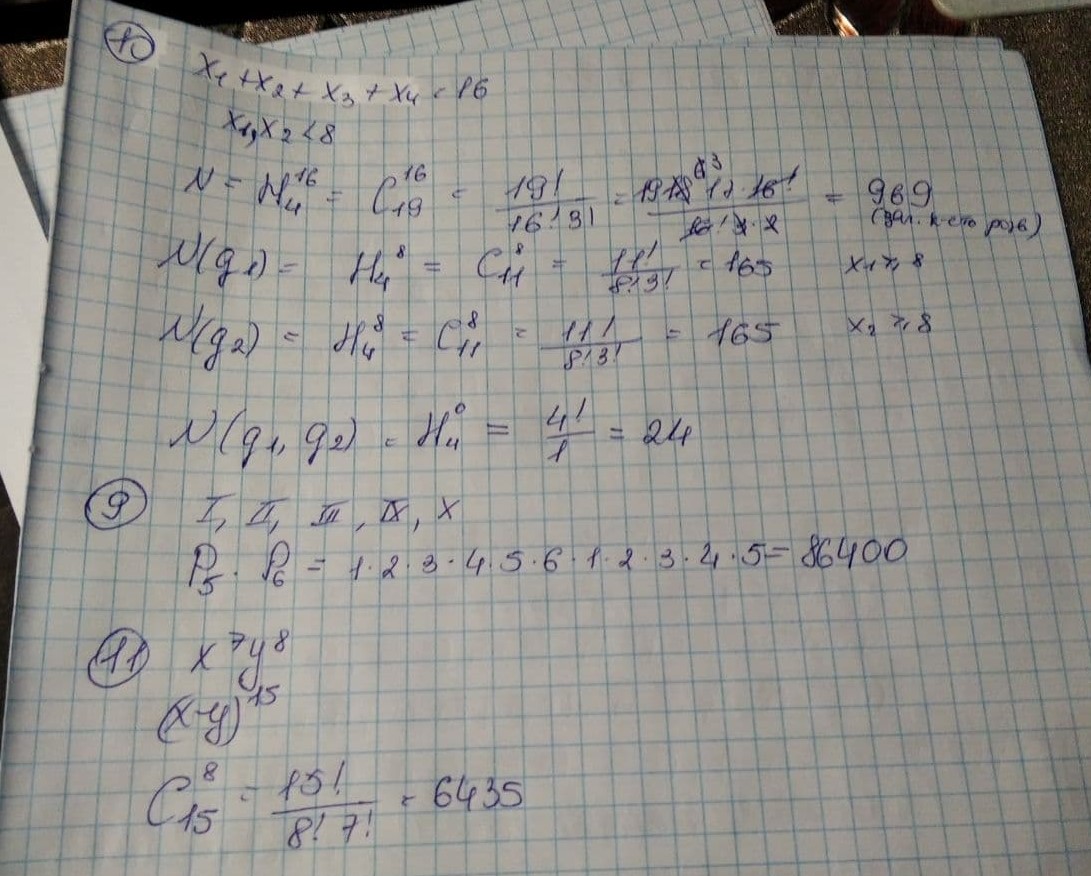 10
x₁ + x₂ + x₃ + x₄ = 16
x₁, x₂ < 8
N = H₄¹⁶ = C₁₉¹⁶ = 19! / 16! 3! = 19 18 17 · 16! / 16! · 2 = 969
N(g₁) = H₄⁸ = C₁₁⁸ = 11! / 8! 3! = 165 x₁ ≥ 8
N(g₂) = H₄⁸ = C₁₁⁸ = 11! / 8! 3! = 165 x₂ ≥ 8
N(g₁, g₂) = H₄⁰ = 4! / 1 = 24
9 I, II, III, IX, X
P₅ · P₆ = 1·2·3·4·5·6·1·2·3·4·5 = 86400
11 x⁷y⁸
(x-y)¹⁵
C₁₅⁸ = 15! / 8! 7! = 6435